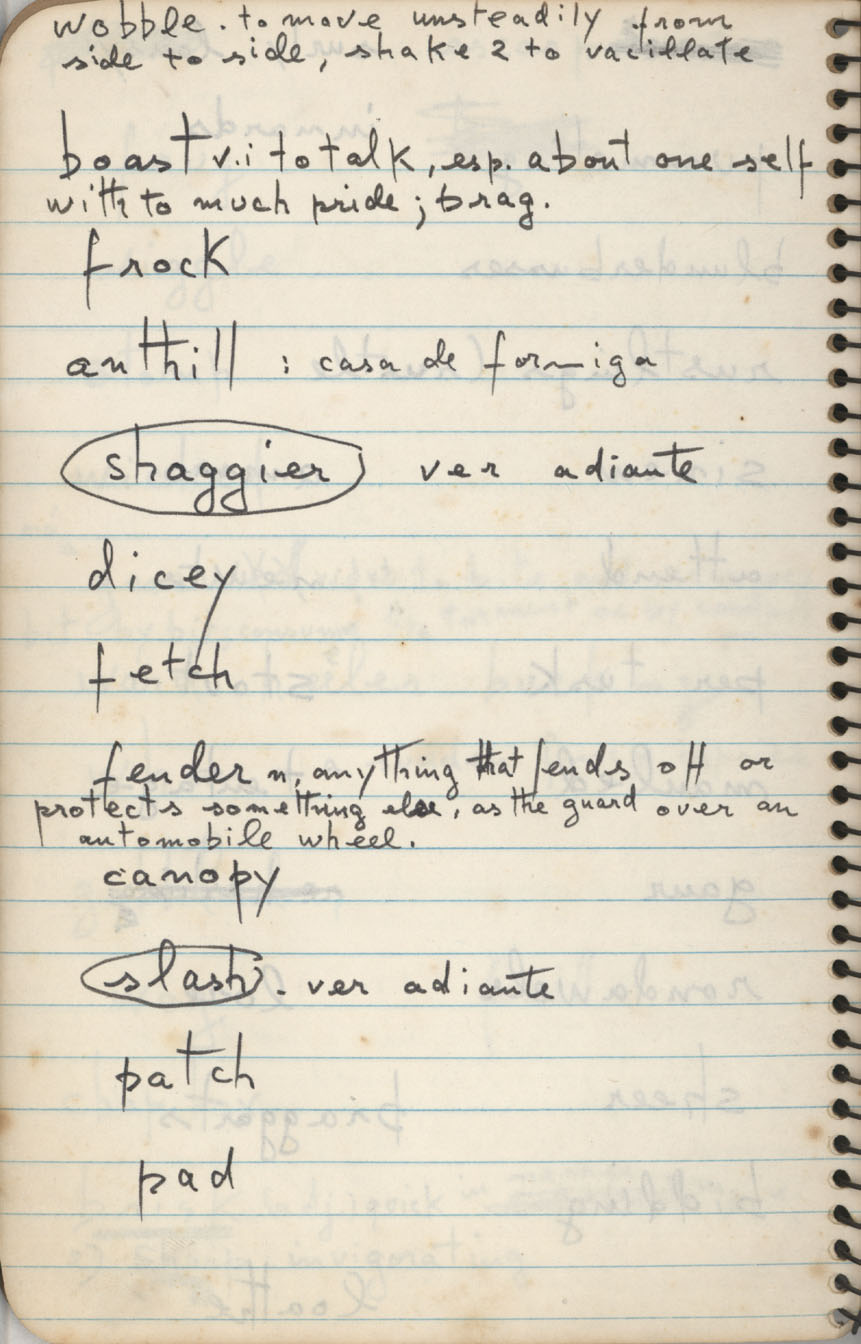 wobble. to move unsteadily from
side to side, shake 2 to vacillate
boast v.i to talk, esp. about one self
with to much pride; brag.
frock
anthill : casa de formiga
shaggier ver adiante
dicey
fetch
fender n, anything that fends off or
protects something else, as the guard over an
automobile wheel.
canopy
slash. ver adiante
patch
pad